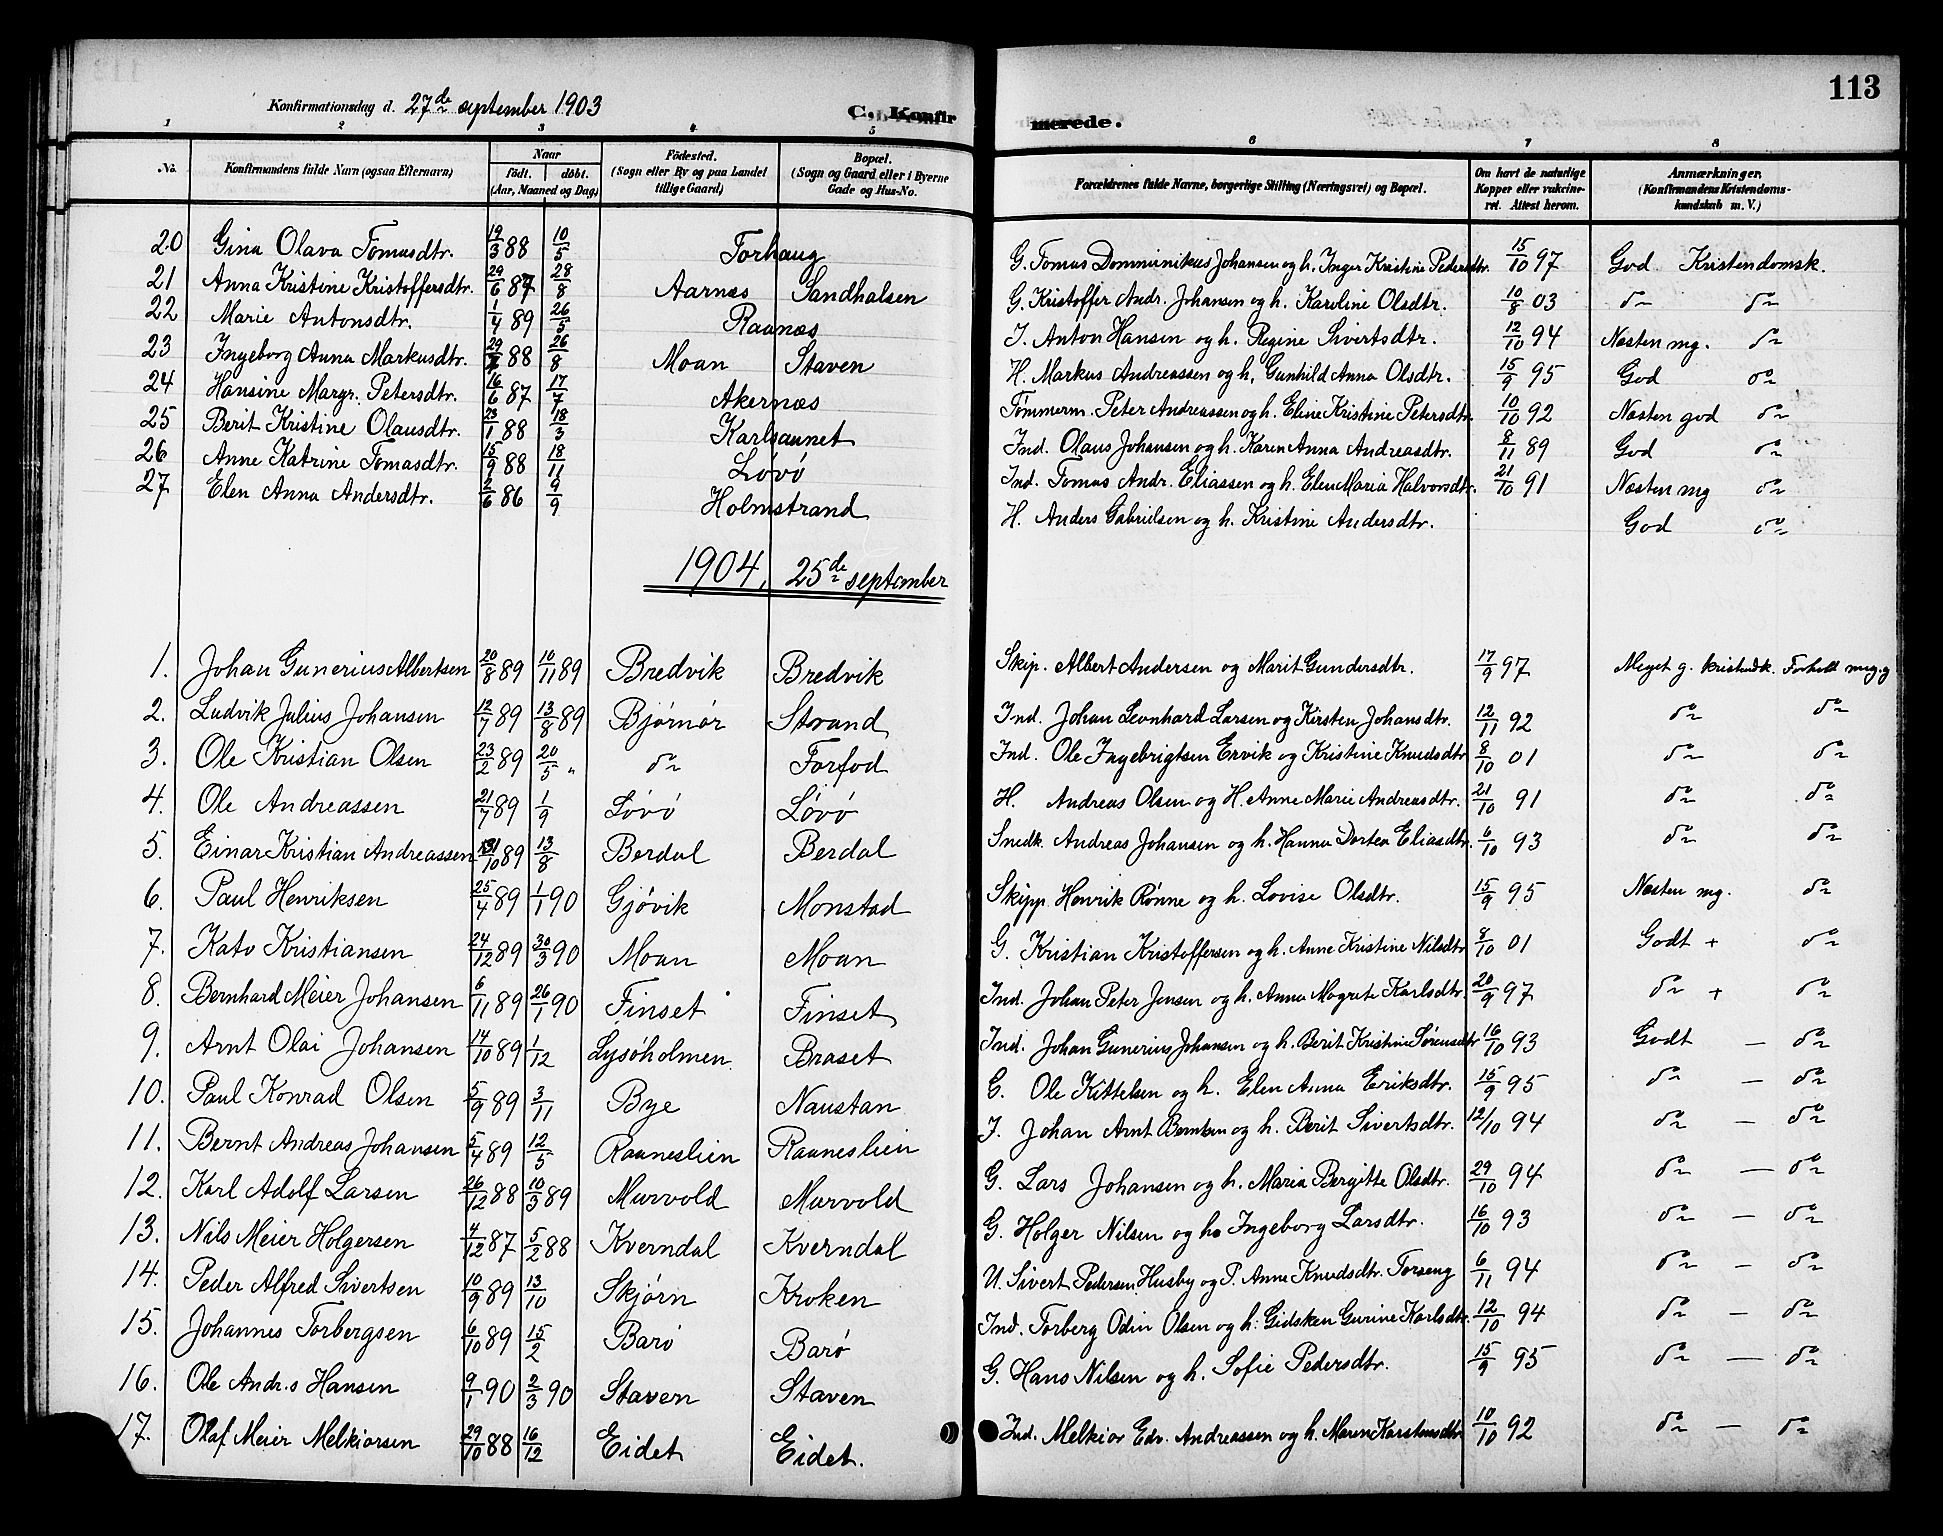 113
Konfirmationsdag d. 27de september 1903 C. Konfirmerede.
1 2 3 4 5 6 7 8
No. Konfirmandens fulde Navn (ogsaa Efternavn) Naar født. døbt. (Aar, Maaned og Dag) Fødested. (Sogn eller By og paa Landet tillige Gaard) Bopæl. (Sogn og Gaard eller i Byerne Gade og Hus-No. Forældrenes fulde Navne, borgerlige Stilling (Næringsvei) og Bopæl. Om havt de naturlige Kopper eller vakcineret. Attest herom. Anmærkninger. (Konfirmandens Kristendomskundskab m. V.)
20 Gina Olava Tomasdtr. 19/3 88 10/5 Forhaug G. Tomas Domminikus Johansen og h. Inger Kristine Pedersdtr. 15/10 97 God Kristendomsk.
21 Anna Kristine Kristoffersdtr. 29/6 87 28/8 Aarnæs Sandhalsen G. Kristoffer Andr. Johansen og h. Karoline Olsdtr. 10/8 03 do do
22 Marie Antonsdtr. 1/4 89 26/5 Raanæs I. Anton Hansen og h. Regine Sivertsdtr. 12/10 94 Næsten mg. do
23 Ingeborg Anna Markusdtr. 29/7 88 26/8 Moan Staven H. Markus Andreassen og h. Gunhild Anna Olsdtr. 15/9 95 God do
24 Hansine Margr. Petersdtr. 16/6 87 17/7 Akernæs Tømmerm. Peter Andreassen og h. Eline Kristine Petersdtr. 10/10 92 Næsten god do
25 Berit Kristine Olausdtr. 23/1 88 18/3 Karlsaunet Ind. Olaus Johansen og h. Karen Anna Andreasdtr. 8/11 89 God do
26 Anne Katrine Tomasdtr. 15/9 88 18/11 Løvø Ind. Tomas Andr. Eliassen og h. Elen Maria Halvorsdtr. 21/10 91 Næsten mg do
27 Elen Anna Andersdtr. 2/6 86 9/9 Holmstrand H. Anders Gabrielsen og h. Kristine Andersdtr. God do
1904, 25de september
1. Johan Gunerius Albertsen 20/8 89 10/11 89 Bredvik Bredvik Skip. Albert Andersen og Marit Gundersdtr. 17/9 97 Meget g. kristendk. Forhold meg. g
2. Ludvik Julius Johansen 12/7 89 13/8 89 Bjørnør Strand Ind. Johan Leonhard Larsen og Kirsten Johansdtr. 12/11 92 do do
3. Ole Kristian Olsen 23/2 89 20/5 " do Forfod Ind. Ole Ingebrigtsen Ervik og Kristine Knudsdtr 8/10 01 do do
4. Ole Andreassen 21/7 89 1/9 Løvø Løvø H. Andreas Olsen og H. Anne Marie Andreasdtr. 21/10 91 do do
5. Einar Kristian Andreassen 31/10 89 13/8 Berdal Berdal Snedk. Andreas Johansen og h. Hanna Dortea Eliasdtr. 6/10 93 do do
6. Paul Henriksen 25/4 89 1/1 90 Gjøvik Monstad Skipp. Henrik Rønne og h. Lovise Olsdtr. 15/9 95 Næsten mg. do
7. Kato Kristiansen 24/12 89 30/3 90 Moan Moan G. Kristian Kristoffersen og h. Anne Kristine Nilsdtr 8/10 01 Godt + do
8. Bernhard Meier Johansen 6/11 89 26/1 90 Finset Finset Ind. Johan Peter Jensen og h. Anna Magrete Karlsdtr. 20/9 97 do + do
9. Arnt Olai Johansen 14/10 89 1/12 Lysøholmen Braset Ind. Johan Gunerius Johansen og h. Berit Kristine Sørensdtr 16/10 93 Godt — do
10. Paul Konrad Olsen 5/9 89 3/11 Bye Naustan G. Ole Kittelsen og h. Elen Anna Eriksdtr. 15/9 95 do — do
11. Bernt Andreas Johansen 5/4 89 12/5 Raaneslien Raaneslien I. Johan Arnt Berntsen og h. Berit Sivertsdtr. 12/10 94 do — do
12. Karl Adolf Larsen 26/12 88 10/3 89 Murvold Murvold G. Lars Johansen og h. Maria Bergitte Olsdtr. 29/10 94 do — do
13. Nils Meier Holgersen 4/12 87 5/2 88 Kverndal Kverndal G. Holger Nilsen og h. Ingeborg Larsdtr. 16/10 93 do — do
14. Peder Alfred Sivertsen 10/9 89 13/10 Skjørn Kroken U. Sivert Pedersen Husby og P. Anne Knudsdtr. Torseng 6/11 94 do — do
15. Johannes Torbergsen 6/10 89 15/2 Barø Barø Ind. Torberg Odin Olsen og h. Gidsken Gurine Karlsdtr. 12/10 94 do — do
16. Ole Andr.s Hansen 9/1 90 2/3 90 Staven Staven G. Hans Nilsen og h. Sofie Pedersdtr. 15/9 95 do — do
17. Olaf Meier Melkiorsen 29/10 88 16/12 Eidet Eidet. Ind. Melkior Edv. Andreassen og h. Maren Karstensdtr 10/10 92 do — do